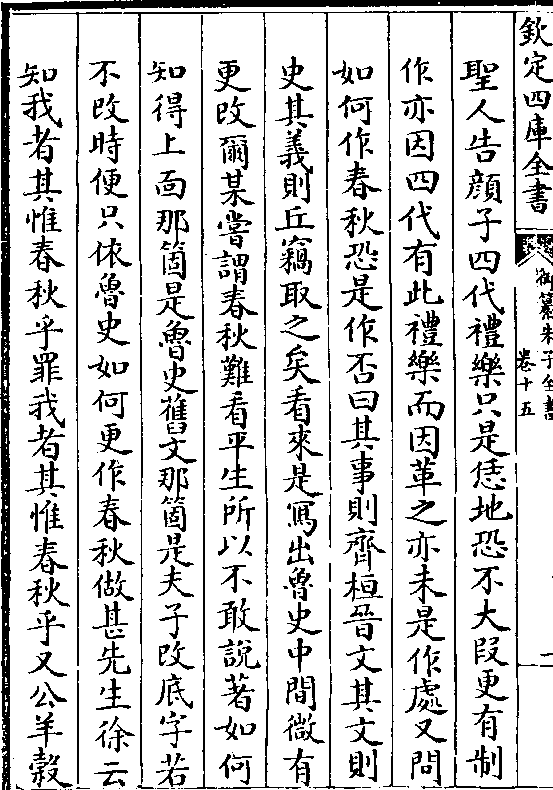 欽定四庫全書
御纂朱子全書
卷十五
一
聖人告顔子四代禮樂只是恁地恐不大段更有制
作亦因四代有此禮樂而因革之亦未是作處又問
如何作春秋恐是作否曰其事則齊桓晉文其文則
史其義則丘竊取之矣看來是寫出魯史中間微有
更改爾某嘗謂春秋難看平生所以不敢說著如何
知得上面那箇是魯史舊文那箇是夫子改底字若
不改時便只依魯史如何更作春秋做甚先生徐云
知我者其惟春秋乎罪我者其惟春秋乎又公羊榖